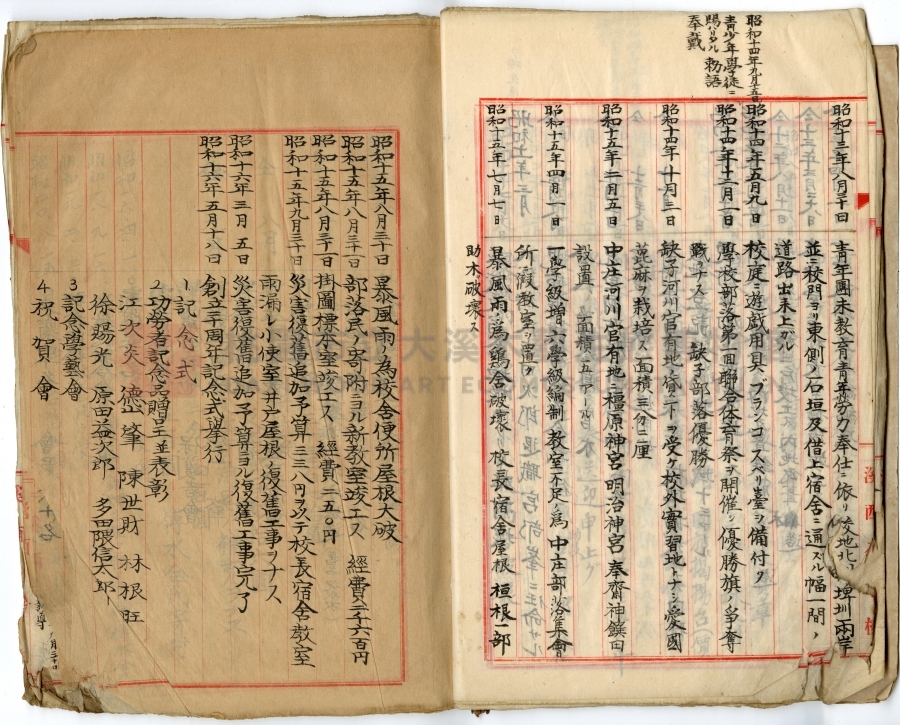 昭和十四年九月二十五日
青少年學徒ニ
賜ハリタル 勅語
奉戴
昭和十三年八月三十日 青年團未教育青年勞力奉仕ニ依リ校地北 埤圳兩岸
並ニ校門ヨリ東側ノ石垣及借上宿舍ニ通ズル幅一間ノ
道路出来上ガル
昭和十四年五月九日 校庭ニ遊戯用具、ブランコ、スベリ臺ヲ備付ク
昭和十四年十二月一日 學校部落第一回聯合体育祭ヲ開催シ優勝旗ノ爭奪
戰ヲナス 缺子部落優勝
昭和十四年十月三日 缺子河川官有地ノ貸下ヲ受ケ校外實習地トナシ愛國
蓖麻ヲ栽培ス 面積三分二厘
昭和十五年二月五日 中庄河川官有地ニ橿原神宮明治神宮奉齋神饌田
設置 面積 五アール
昭和十五年四月一日 一學級増六學級編制、教室一不足ノ為中庄部落集會
所ニ假教室ヲ置ク
昭和十五年七月七日 暴風雨ノ為鷄舍破壞、校長宿舍屋根 垣根一部
助木破壞ス
昭和十五年八月三十日 暴風雨ノ為校舍便所屋根大破
昭和十五年八月三十一日 部落民ノ寄附ニヨル新教室竣工ス 經費二千六百円
昭和十五年八月三十日 掛圖標本室竣工ス 經費二五〇円
昭和十五年九月三十日 災害復舊追加予算三三八円ヲ以テ校長宿舍教室
雨漏レ小便室井戸屋根ノ復舊工事ヲナス
昭和十六年三月五日 災害復舊追加予算ニヨル復舊工事完了
昭和十六年五月十八日 創立二十周年記念式擧行
1 記念式
2 功勞者記念品贈呈並表彰
江次炎 德山肇 陳世財 林根旺
徐賜光 原田益次郎 多田隈信太郎
3 記念學藝會
4 祝賀會